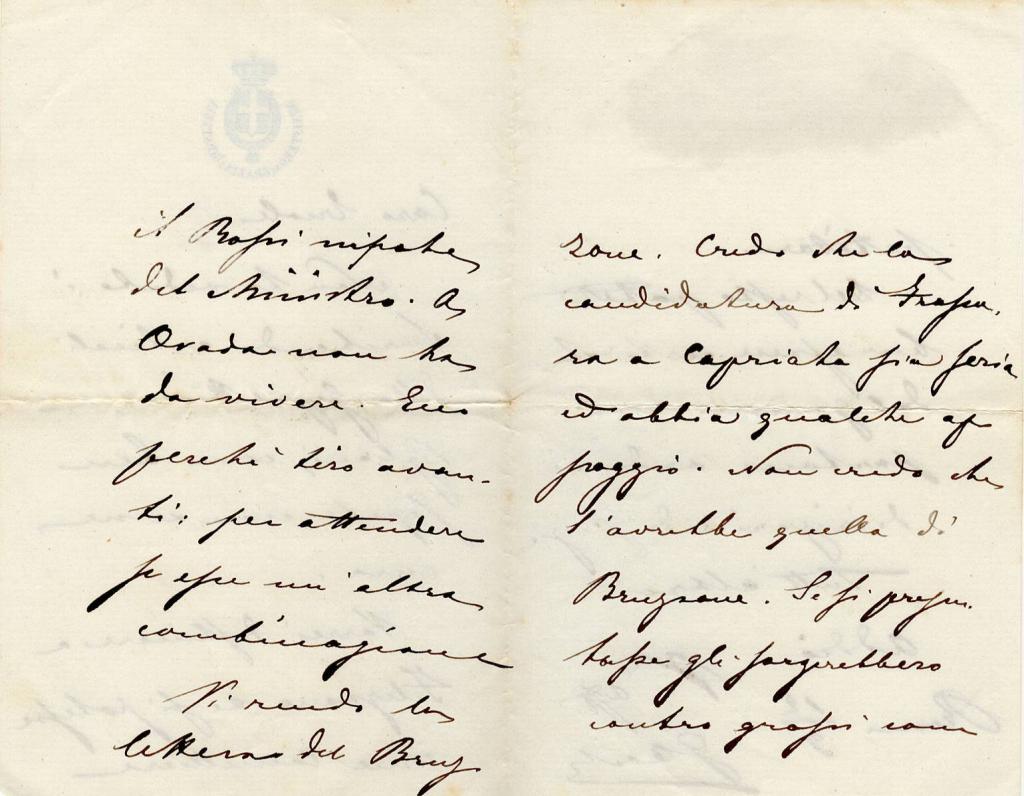 il Rossi nipote
del Ministro. A
Ovada non ha
da vivere. Ecco
perchè tiro avan-
ti: per attendere
se esce un'altra
combinazione
Vi rendo la
lettera del Bruz
zone. Credo che la
candidatura di Frasca
ra a Capriata sia seria
ed abbia qualche ap
poggio. Non credo che
l'avrebbe quella di
Bruzzone. Se si presen
tasse gli sorgerebbero
contro grossi com